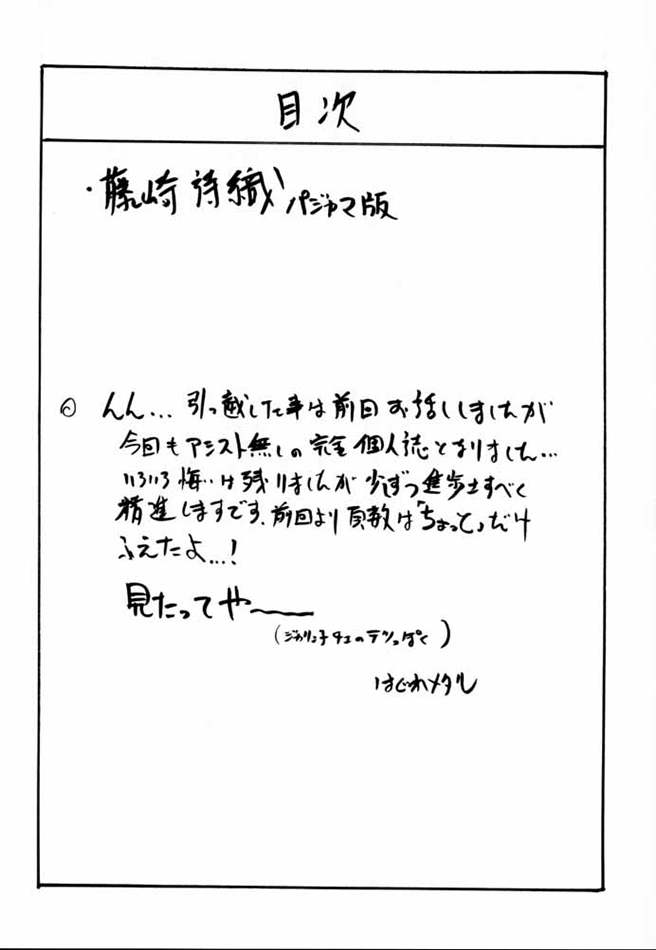 目次
・藤崎詩織パジャマ版
◎ んん…引っ越しした事は前回お話ししましたが
今回もアシスト無しの完全個人誌となりました…
いろいろ悔いは残りましたが少しずつ進歩すべく
精進しますです、前回より頁数は「ちょっと」だけ
ふえたよ…!
見たってや〜
(ジャリン子チエのテツっぽく)
はぐれメタル